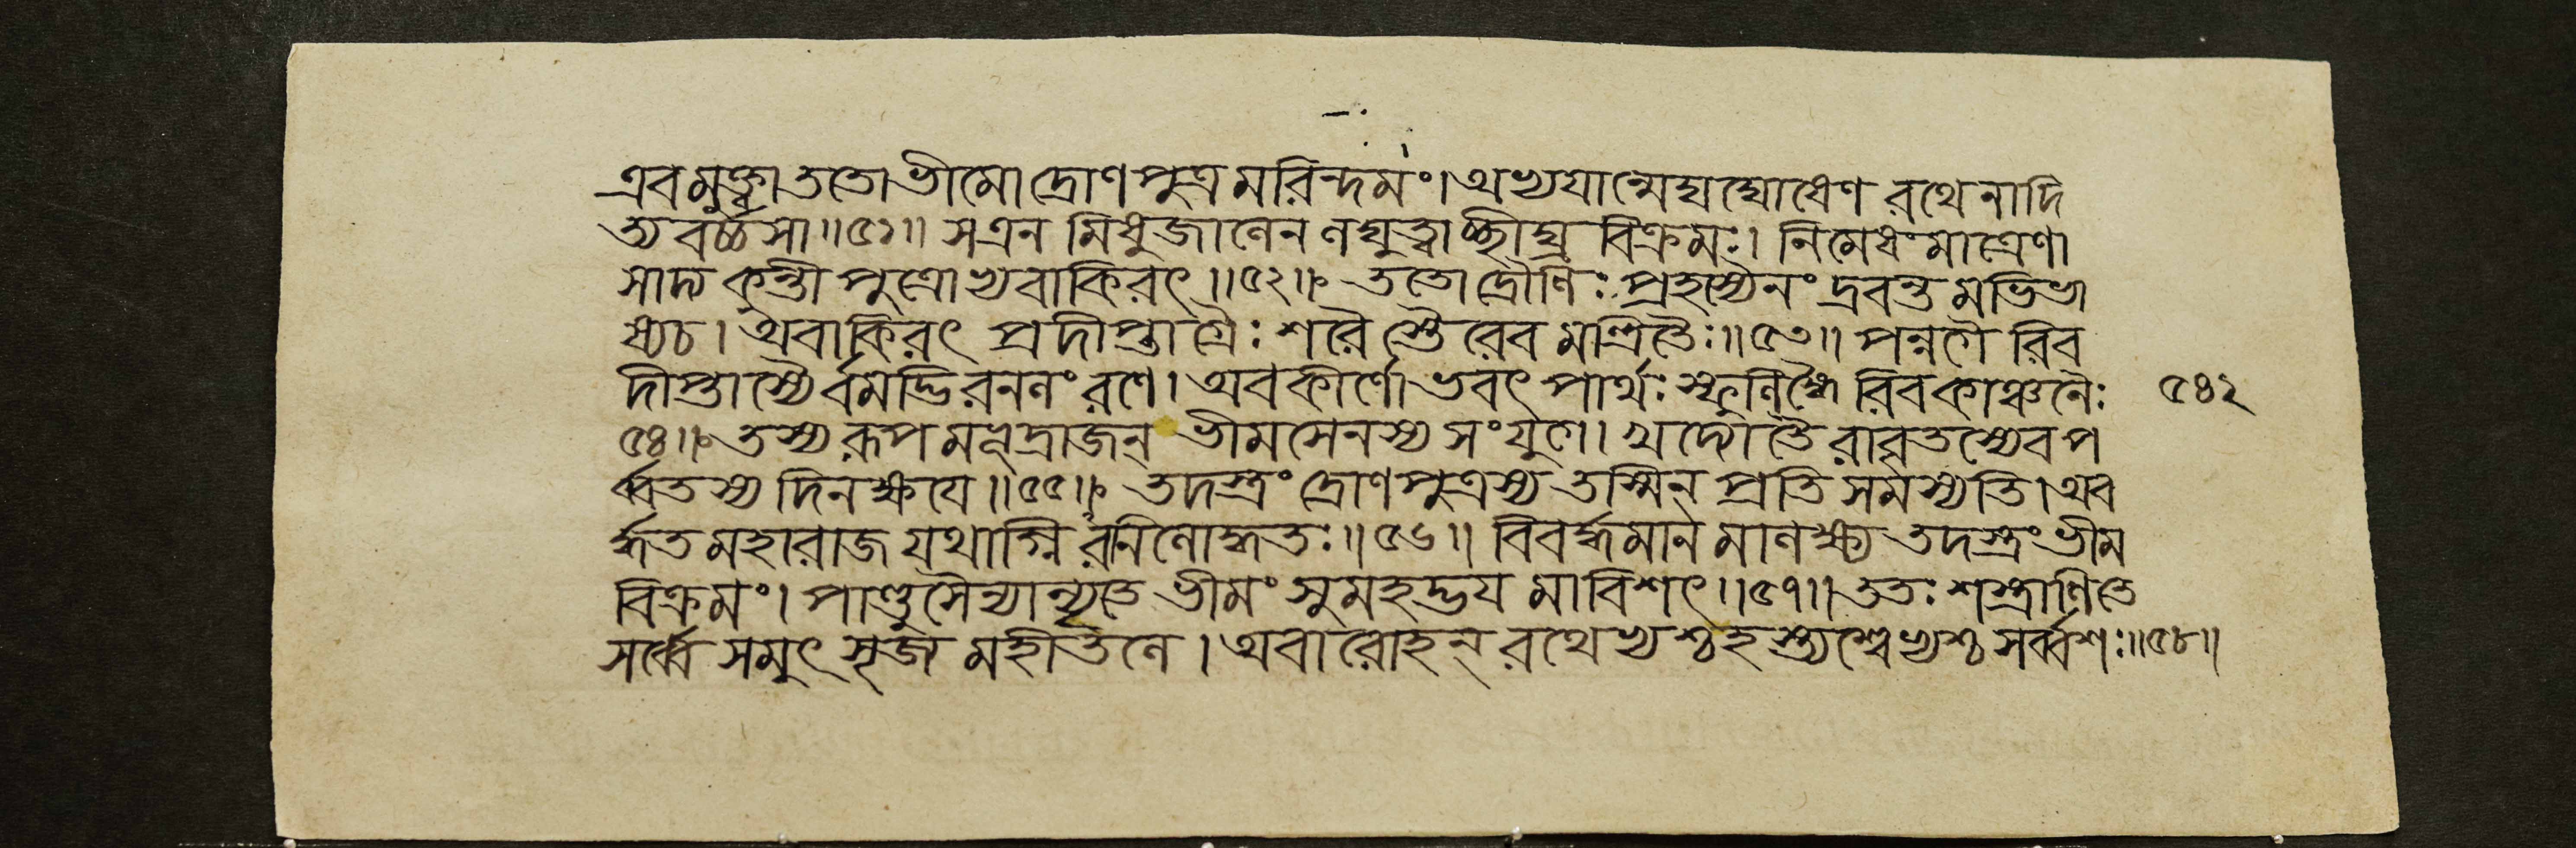 এবমুক্ত্বা ততো ভীমো দ্রোণপুত্রমরিন্দমং। অভ্যযান্মেঘঘোষেণ রথেনাদি
ত্যবর্চ্চসা॥৫১॥ স এনমিষুজালেন লঘুত্বাচ্ছীঘ্রবিক্রমঃ। নিমেষমাত্রেণা
সাদ্য কুন্তীপুত্রোভ্যবাকিরৎ॥৫২॥ ততো দ্রৌণিঃ প্রহস্যৈনং দ্রবন্তমভিভা
ষ্যচ। অবাকিরৎ প্রদীপ্তাগ্রৈঃ শরৈস্তৈরভিমন্ত্রিতৈঃ॥৫৩॥ পন্নগৈরিব
দীপ্তাস্যৈর্বমদ্ভিরনলং রণে। অবকীর্ণোভবৎ পার্থঃ স্ফুলিঙ্গৈরিবকাঞ্চনৈঃ ৫৪২
৫৪॥ তস্য রূপমভূদ্রাজন্ ভীমসেনস্য সংযুগে। খদ্যোতৈরাবৃতস্যেবপ
র্ব্বতস্য দিনক্ষয়ে॥৫৫॥ তদস্ত্রং দ্রোণপুত্রস্য তস্মিন্ প্রতিসমস্যতি। অব
র্দ্ধত মহারাজ যথাগ্নিরনিলোদ্ধতঃ॥৫৬॥ বিবর্দ্ধমানমালক্ষ্য তদস্ত্রং ভীম
বিক্রমং। পাণ্ডুসৈন্যান্যৃতে ভীমং সুমহদ্ভয়মাবিশৎ॥৫৭॥ ততঃ শস্ত্রাণিতে
সর্ব্বে সমুৎসৃজ্য মহীতলে। অবারোহন্ রথেভ্যশ্চ হস্ত্যশ্বেভ্যশ্চ সর্ব্বশঃ॥৫৮॥